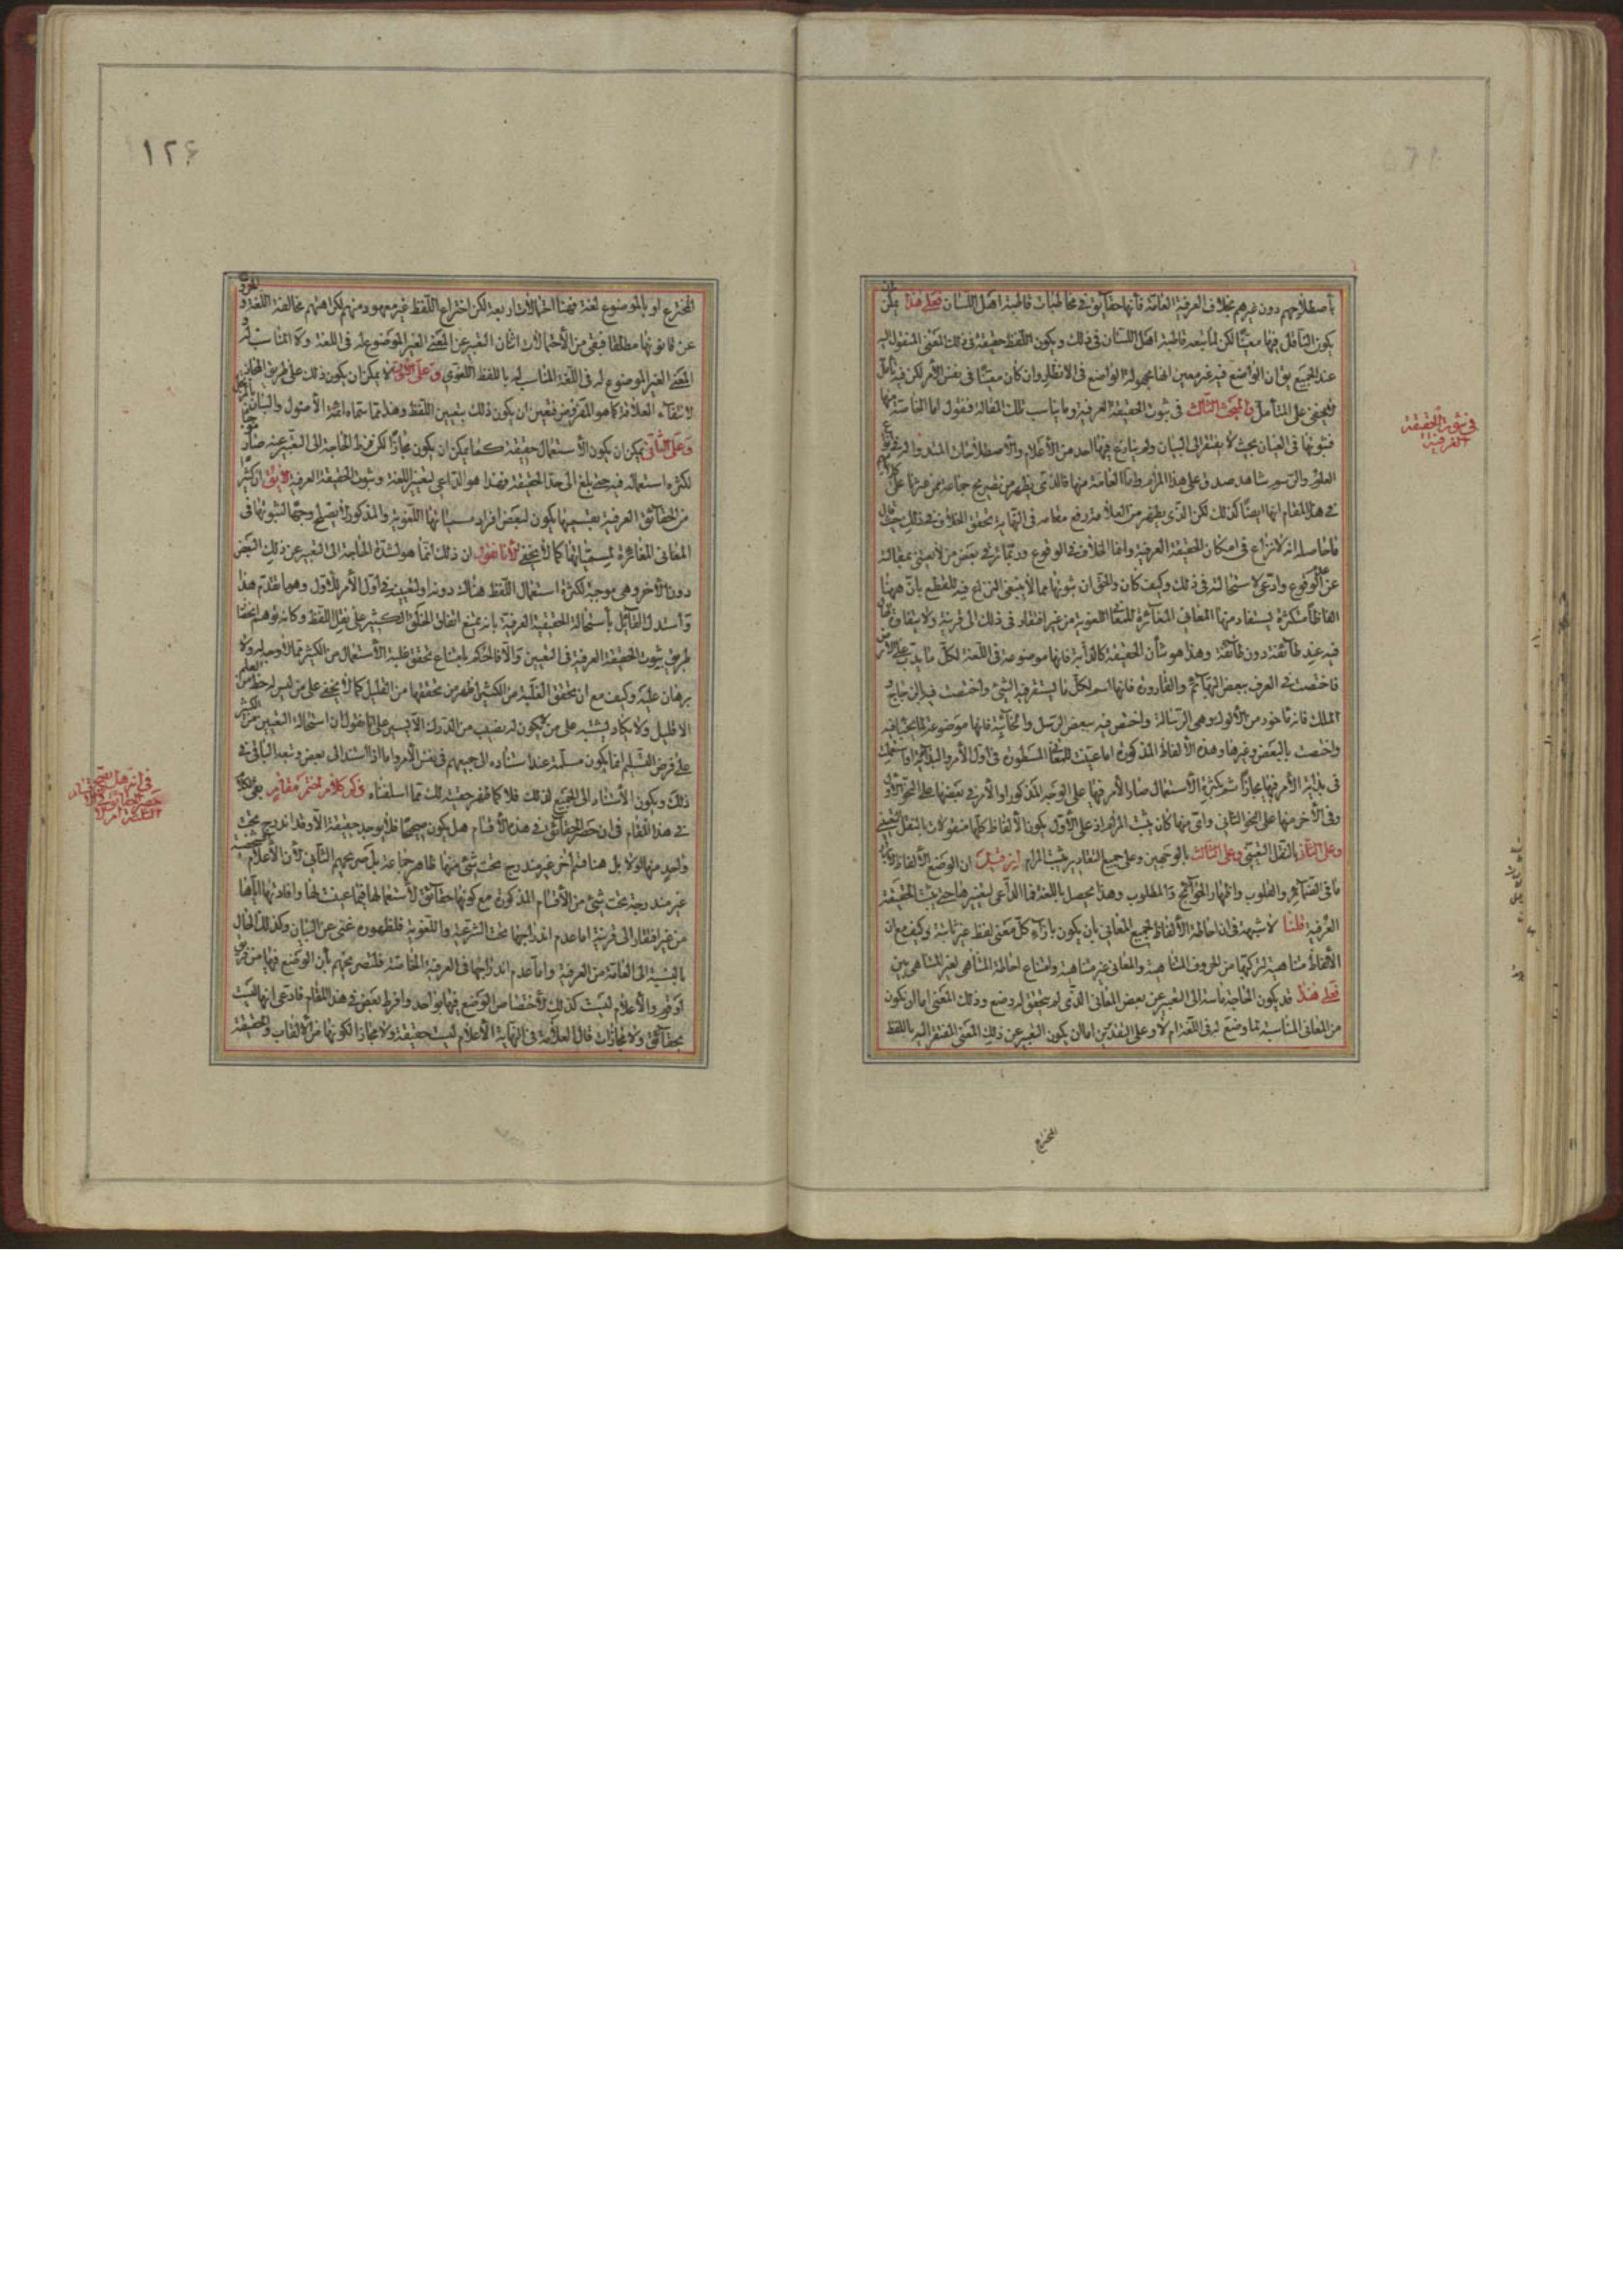 بأصطلاحهم دون غيرهم بخلاف العرفية العامة فأنها حقايق في مخاطبات قاطبة اهل اللسان فعلى هذا يمكن ان
يكون الناقل فيها معينًا لكن لما تبعه قاطبة اهل اللسان في ذلك ويكون اللفظ حقيقة في ذلك المعنى المنقول اليه
عند الجميع يق ان الواضع فيه غير معين اما مجهولية الواضع في الانظار وان كان معينًا في نفس الأمر لكن فيه تأمل
لا يخفى على المتأمل والمبحث الثالث في ثبوت الحقيقة العرفية وما يناسب تلك المقالة فنقول اما الخاصة منها
فثبوتها في العيان بحيث لا يفتقر الى البيان ولم ينازع فيها احد من الأعلام والأصطلاحات المتداولة في
العلوم والرسوم شاهد صدق على هذا المرام واما العامة منها فالذي يظهر من تصريح جماعة ممن عثرنا على
في هذا المقام انها ايضًا كذلك لكن الذي يظهر من العلامة رفع مقامه في النهاية تحقق الخلاف في ذلك حيث قال
ما حاصله انه لا نزاع في امكان الحقيقة العرفية وانما الخلاف في الوقوع وربما نازع بعض من لا يعتنى بمقالته
عن الوقوع وادعى استحالته في ذلك وكيف كان والحق ان ثبوتها مما لا ينبغي النزاع فيه للقطع بأن ههنا
الفاظًا متكثرة يستفاد منها المعاني المغائرة للمعاني اللغوية من غير افتقار في ذلك الى قرينة ولا يتفاوت
فيه عند طآئفة دون طآئفة وهذا هو شأن الحقيقة كالدآبة فانها موضوعة في اللغة لكل ما يدب على الارض
فاختصت في العرف ببعض البهآئم والقارورة فانها اسم لكل ما يستقر فيه الشيء واختصت فيه بالزجاج و
الملك فانه مأخوذ من الألوكة وهي الرسالة واختص فيه ببعض الرسل والخابية فانها موضوعة لما يخبأ فيه
واختصت بالبعض وغيرها وهذه الألفاظ المذكورة اما عينت للمعاني المسطورة في اول الأمر واستعملت
في بداية الأمر فيها مجازًا ثم كثرة الأستعمال صار الأمر فيها على الوجه المذكور او الأمر في بعضها على النحو الأول
وفي الأخر منها على النحو الثاني وأي منها كان يثبت المرام اذ على الأول يكون الألفاظ كلها منقولات بالنقل التعييني
وعلى الثاني بالنقل التعيني وعلى الثالث بالوجهين وعلى جميع التقادير يثبت المرام ان قيل ان الوضع الألفاظ
ما في الضمآئر والقلوب واظهار الحوآئج والمطلوب وهذا يحصل باللغة فما الداعي لتغييرها حتى يثبت الحقيقة
العرفية قلنا لا شبهة في ان احاطة الألفاظ بجميع المعاني بأن يكون بازآء كل معنى لفظ غير ثابتة وكيف مع ان
الألفاظ متناهية لتركبها من الحروف المتناهية والمعاني غير متناهية وامتناع احاطة المتناهي لغير المتناهي بين
فعلى هذا قد يكون الحاجة ماسة الى التعبير عن بعض المعاني الذي لم يتحقق له وضع وذلك المعنى اما ان يكون
من المعاني المناسبة لما وضع له في اللغة ام لا وعلى التقديرين اما ان يكون التعبير عن ذلك المعنى المفتقر اليه باللفظ
المخترع
في ثبوت الحقيقة
العرفية
١٢٦
المخترع او بالموضوع لغة فهنا احتمالات اربعة لكن اختراع اللفظ غير معهود منهم لكن همهم مخالفة اللغة و
عن قانونها مطلقا فبقى من الأحتمالات اثنان التعبير عن المعنى الغير الموضوع له في اللغة ولا المناسب له
المعنى الغير الموضوع له في اللغة المناسب له باللفظ اللغوي وعلى الأول لا يمكن ان يكون ذلك على طريق المجاز
لانتفآء العلاقة كما هو المفروض فتعين ان يكون ذلك بتعيين اللفظ وهذا مما سماه ائمة الأصول والبيان
وعلى الثاني يمكن ان يكون الأستعمال حقيقة كما يمكن ان يكون مجازًا لكن فرط الحاجة الى التعبير عنه صار
لكثرة استعماله فيه حتى بلغ الى حد الحقيقة وهذا هو الداعي لتغيير اللغة وثبوت الحقيقة العرفية لا يق ان كثيرًا
من الحقآئق العرفية بعض مسمياتها يكون لبعض افراد مسمياتها اللغوية والمذكور لا يصلح وجهًا لثبوتها في
المعاني المغائرة لمسمياتها كما لا يخفى لأنا نقول ان ذلك انما هو لشدة الحاجة الى التعبير عن ذلك البعض
دون الآخر وهي موجبة لكثرة استعمال اللفظ هناك دونه او لتعيينه في اول الأمر للأول وهو ما تقدم هذا
وأستدل القآئل بأستحالة الحقيقة العرفية بانه يمتنع اتفاق الخلق الكثير على نقل اللفظ وكانه توهم انحصار
طريق ثبوت الحقيقة العرفية في التعيين والا فالحكم بامتناع تحقق غلبة الأستعمال من الكثير مما لا وجه له ولا
برهان عليه وكيف مع ان تحقق الغلبة من الكثير اظهر من تحققها من القليل كما لا يخفى على من ليس له حظ من العلم
الا قليل ولا يكاد يشتبه على من يكون له نصيب من المدرك الا يسير على انا نقول ان استحالة التعيين من الكثير
على فرض التسليم انما يكون مسلمة عند استناده الى جميعهم في نفس الأمر واما اذا استند الى بعض وتبعه الباقي في
ذلك ويكون الأستناد الى الجميع لذلك فلا كما ظهر حقيقة تلك مما اسلفناه وذكر كلام لختم مقام بقى الكلام
في هذا المقام في ان حصر الحقآئق في هذه الأقسام هل يكون صحيحًا فلا يوجد حقيقة الا وقد اندرج تحت
واحد منها اولا بل هنا قسم آخر غير مندرج تحت شيء منها ظاهر جماعة بل صريحهم الثاني لأن الأعلام
غير مندرجة تحت شيء من الأقسام المذكورة مع كونها حقآئق لأستعمالها فيما عينت لها وافادتها اياها
من غير افتقار الى قرينة اما عدم اندراجها تحت الشرعية واللغوية فلظهوره غني عن البيان وكذلك الحال
بالنسبة الى العامة من العرفية واما عدم اندراجها في العرفية الخاصة فلتصريحهم بأن الوضع فيها من فريق
او قوم والأعلام ليست كذلك لأختصاص الوضع فيها بواحد وافرط بعض في هذا المقام فادعى انها ليست
بحقآئق ولا مجازات قال العلامة في النهاية الأعلام ليست حقيقة ولا مجازا لكونها من الألقاب والحقيقة